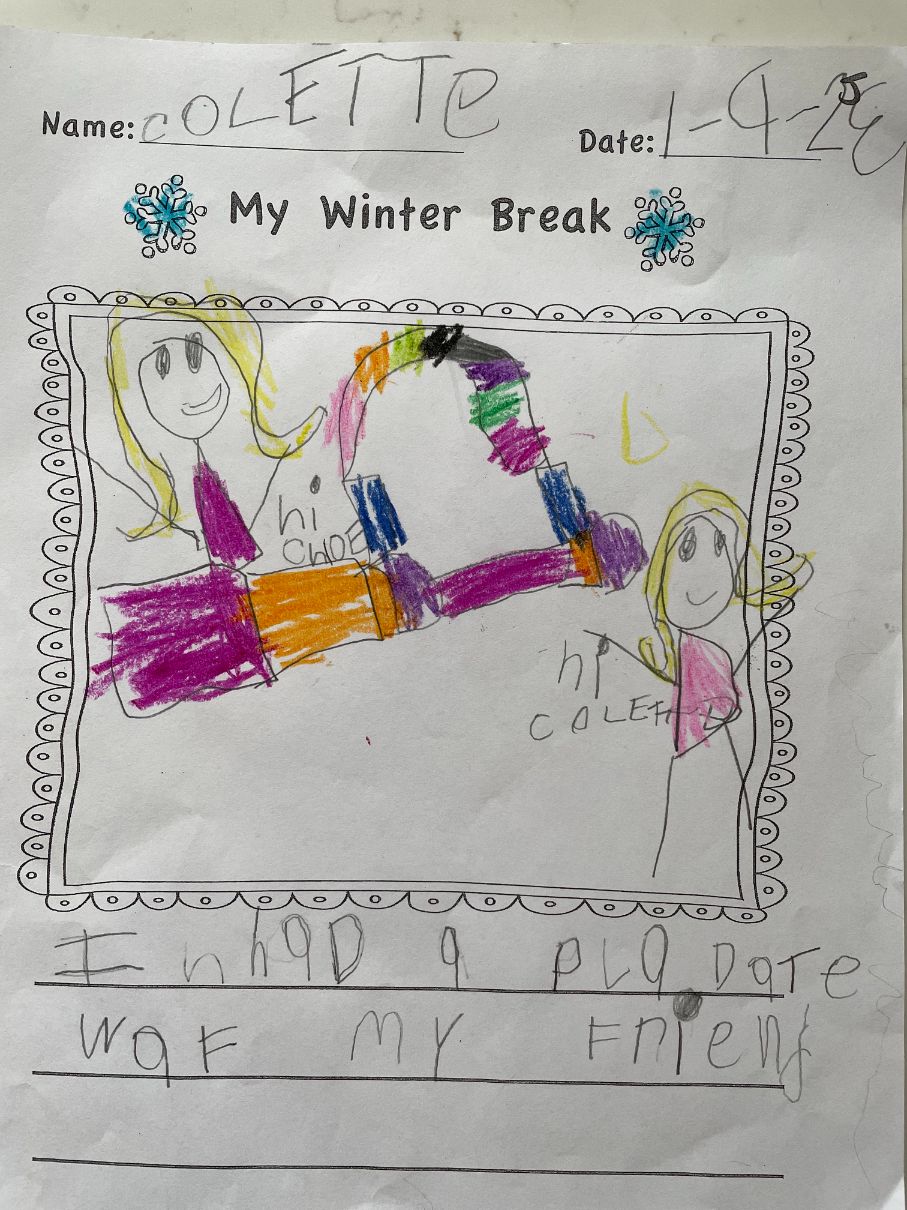 Name: COLETTe
Date: 1-9-25
My Winter Break
hi
CHOE
hi
COLETTE
I n haD a PLa Date
waF MY FRienf